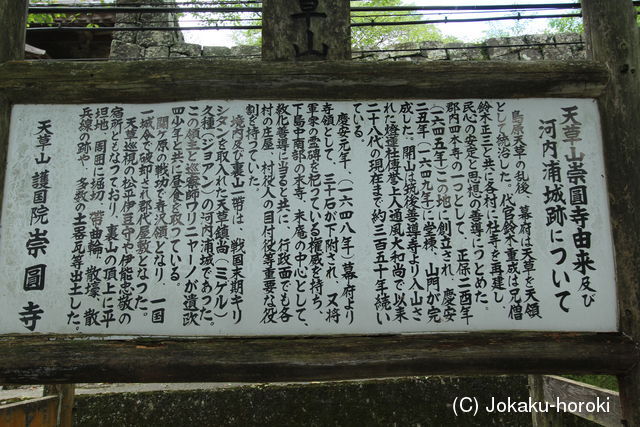 草山
天草山崇圓寺由来及び
河内浦城跡について
島原天草の乱後、幕府は天草を天領
として統治した。代官鈴木重成は兄僧
鈴木正三と共に各村に社寺を再建し、
民心の安定と思想の善導につとめた。
郡内四本寺の一つとして、正保二酉年
(一六四五年)この地に創立され、慶安
二丑年(一六四九年)に堂様、山門が完
成した。開山は筑後善導寺より入山さ
れた燈蓮社傳誉上人通風大和尚で以来
二十八代の現在まで約三百五十年続い
ている。
慶安元年、(一六四八年)幕府より
寺領として、三十石が下附され、又将
軍家の霊碑を祀っている権威を持ち、
下島中南部の末寺、末庵の中心として、
教化善導に当ると共に、行政面でも各
村の庄屋、村役人の目付役等重要な役
割を持っていた。
境内及び裏山一帯は、戦国末期キリ
シタンを取入れた天草鎮尚(ミゲル)
久種(ジョアン)の河内浦城であった。
この領主と巡察師ワリニャーノが遺欧
四少年と共に昼食を取っている。
関ヶ原の戦功で寺沢領となり、一国
一城令で破却され郡代屋敷となった。
天草巡視の松平伊豆守や伊能忠敬の
宿所ともなっており、裏山の頂上に平
坦地、周囲に堀切、帯曲輪、散壕、散
兵線の跡や、多数の土器瓦等出土した。
天草山 護國院 崇圓寺
(C) Jokaku-horoki